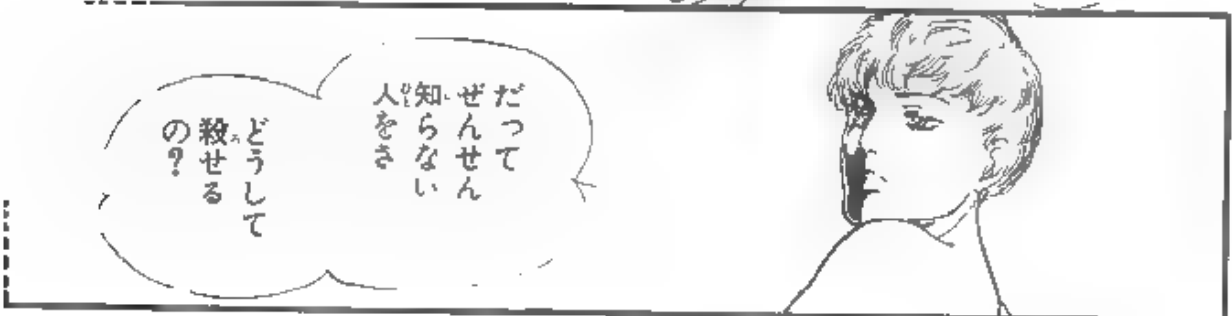 だって
ぜんせん
知らない
人をさ
どうして
殺せる
の?